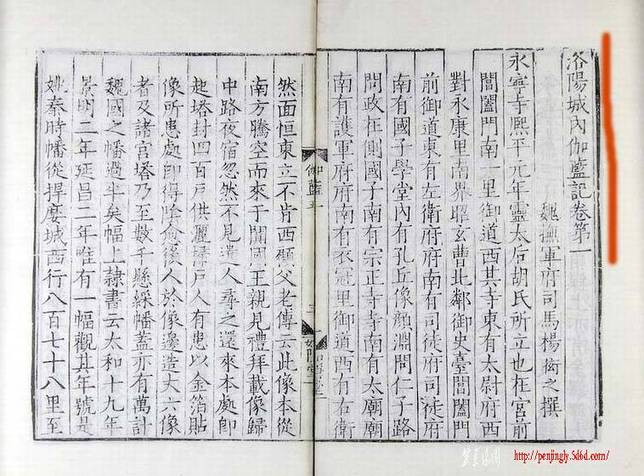 洛陽城內伽藍記卷第一
魏撫軍府司馬楊衒之撰
永寧寺熙平元年靈太后胡氏所立也在宮前
閶闔門南一里御道西其寺東有太尉府西
對永康里南界昭玄曹北鄰御史臺閶闔門
前御道東有左衛府府南有司徒府司徒府
南有國子學堂內有孔丘像顏淵問仁子路
問政在側國子南有宗正寺寺南有太廟廟
南有護軍府府南有衣冠里御道西有右衛
伽藍五
然面恒東立不肯西顧父老傳云此像本從
南方騰空而來于闐國王親見禮拜載像歸
中路夜宿忽然不見遣人尋之還來本處即
起塔封四百戶供灑掃戶人有患以金箔貼
像所患處即得陰愈後人於像邊造丈六像
者及諸宮塔乃至數千懸綵幡蓋亦有萬計
魏國之幡過半矣幅上隸書云太和十九年
景明二年延昌二年唯有一幅觀其年號是
姚秦時幡從捍麼城西行八百七十八里至
http://penjingly.5d6d.com/